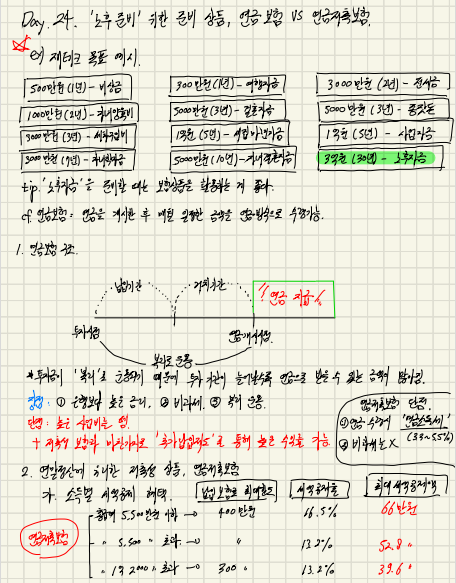 Day. 24. '노후 준비' 위한 준비 상품, 연금보험 VS 연금저축보험.
ex) 재테크 목표 예시.
500만원(1년) - 비상금
300만원(1년) - 여행자금
3000만원(2년) - 전세금
1000만원(2년) -
5000만원(3년) - 결혼자금
5000만원(3년) - 종잣돈
3000만원(3년) -
1억원(5년) - 자금
1억원(5년) - 사업자금
3000만원(7년) -
5000만원(10년) - 자금
3억원(30년) - 노후자금
tip. '노후자금'을 준비할 때는 보험상품을 활용하는 게 좋다.
cf. 연금보험: 연금을 개시한 후 매월 일정한 금액을 연금방식으로 수령가능.
1. 연금보험 구조.
납입기간
거치기간
연금 지급
투자시점
연금개시시점
복리로 운용
* 투자금이 '복리'로 운용되기 때문에 투자 기간이 늘어날수록 연금으로 받을 수 있는 금액이 많아짐.
장점: ① 은행보다 높은 금리, ② 비과세, ③ 복리 운용.
단점: 높은 사업비용.
+ 저축성 보험과 마찬가지로 '추가납입제도'를 통해 높은 수익률 가능.
연금저축보험 단점.
① 연금 수령시 '연금소득세' (3.3~5.5%)
② 비과세는 X
2. 연말정산에 대한 저축성 상품, 연금저축보험
가. 소득별 세액공제 혜택.
납입 보험료 최대한도
세액공제율
최대 세액공제액
연금저축보험
5.500만원 이하 → 400만원 16.5% 66만원
〃 5.500 〃 초과 → 〃 13.2% 52.8 〃
〃 1억 2000 〃 초과 → 300 〃 13.2% 39.6 〃